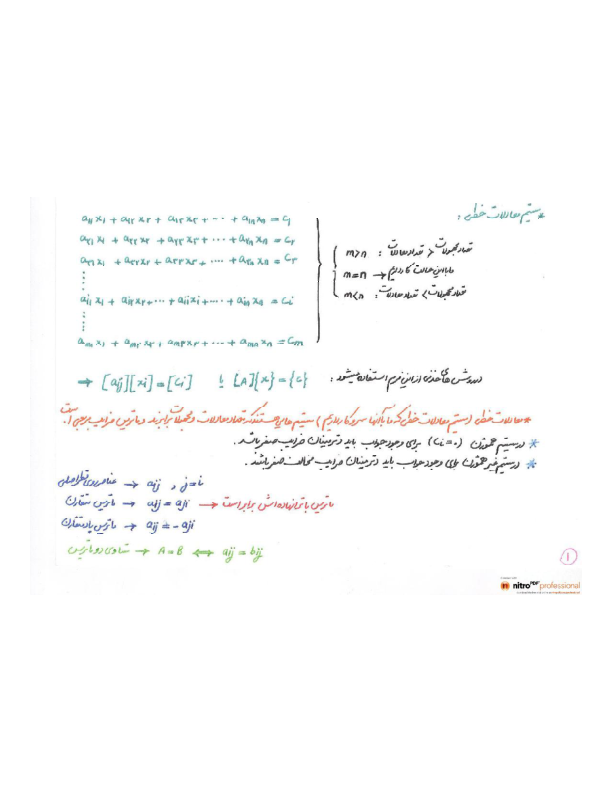 * سیستم معادلات خطی :
a₁₁x₁ + a₁۲x۲ + a₁۳x۳ + ... + a₁ₙxₙ = c₁
a۲₁x₁ + a۲۲x۲ + a۲۳x۳ + ... + a۲ₙxₙ = c۲
a۳₁x₁ + a۳۲x۲ + a۳۳x۳ + .... + a۳ₙxₙ = c۳
aᵢ₁x₁ + aᵢ۲x۲ + ... + aᵢᵢxᵢ + .... + aᵢₙxₙ = cᵢ
aₘ₁x₁ + aₘ۲x۲ + aₘ۳x۳ + ... + aₘₙxₙ = cₘ
m>n : تعداد معادلات > تعداد مجهولات
m=n → ما با این حالت کار داریم
m<n : تعداد مجهولات > تعداد معادلات
در روش های عددی از این فرم استفاده میشود : [A]{x} = {c} یا [aᵢⱼ][xᵢ] = [cᵢ] →
* معادلات خطی (سیستم معادلات خطی که ما با آنها سرو کار داریم) سیستم هایی هستند که تعداد معادلات و مجهولات برابرند و ماتریس ضرایب مربعی است.
* در سیستم همگن (cᵢ=۰) برای وجود جواب باید دترمینان ضرایب صفر باشد.
* در سیستم غیر همگن برای وجود جواب باید دترمینان ضرایب مخالف صفر باشند.
عناصر روی قطر اصلی → aᵢⱼ , i=j
ماتریس متقارن → aᵢⱼ = aⱼᵢ → ماتریس با ترانهاده اش برابر است
ماتریس پادمتقارن → aᵢⱼ = -aⱼᵢ
تساوی دو ماتریس → A=B ⟺ aᵢⱼ = bᵢⱼ
1
nitro PDF professional